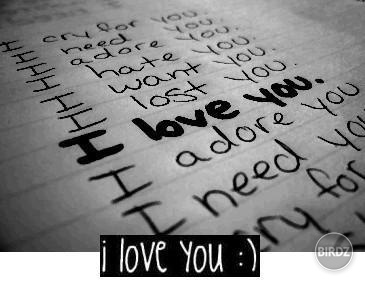 I cry for you.
I need you.
I adore you.
I hate you.
I want you.
I lost you.
I love you.
I adore you
I need you
cry for
i love you :)
BIRDZ